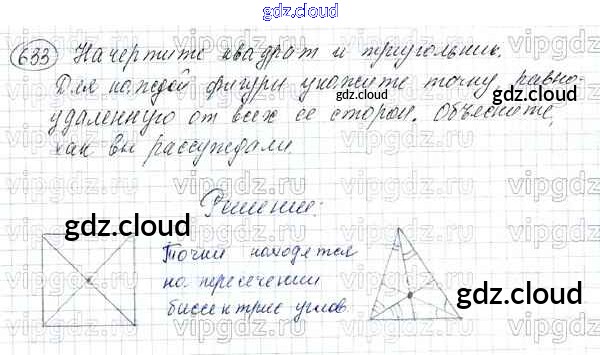 gdz.cloud
633 Начертите квадрат и треугольник.
Для каждой фигуры укажите точку, равно-
удаленную от всех ее сторон. Объясните,
как вы рассуждали.
Решение:
Точки находятся
на пересечении
биссектрис углов
gdz.cloud
gdz.cloud
gdz.cloud
gdz.cloud
gdz.cloud
vipgdz.ru